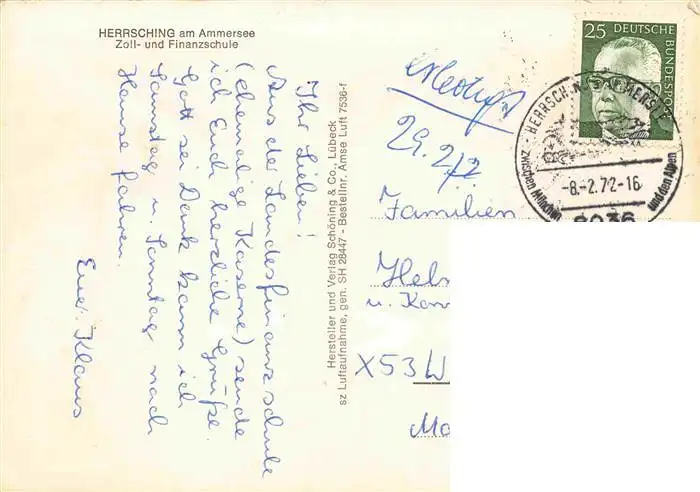 HERRSCHING am Ammersee
Zoll- und Finanzschule
Ihr Lieben!
Aus der Landesfinanzschule
(ehemalige Kaserne) sende
ich Euch herzliche Grüße.
Gott sei Dank kann ich
Samstag u. Sonntag nach
Hause fahren.
Euer Klaus
Hersteller und Verlag Schöning & Co., Lübeck
sz Luftaufnahme, gen. SH 28447 - Bestellnr. Amse Luft 7536-f
erledigt
29.2.72
25 DEUTSCHE BUNDESPOST
HERRSCHING AMMERSEE
-8.-2.72-16
zwischen München und den Alpen
8036
Familien
Hel
u. Kon
X53W
Mo